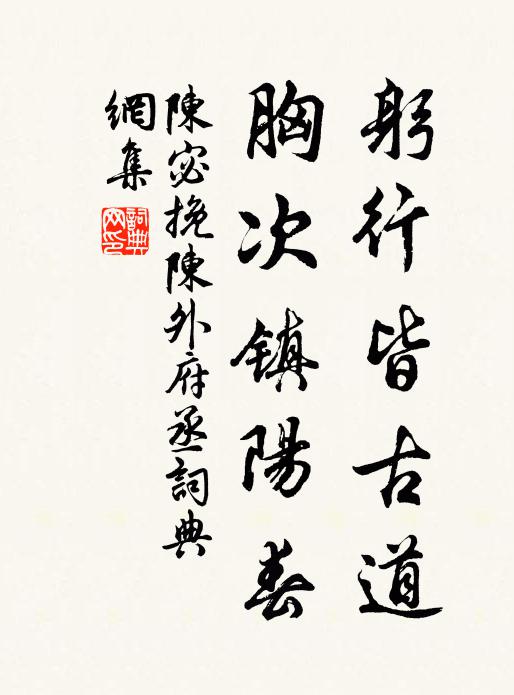 躬行皆古道
胸次鎮陽春
陳宓挽陳外府丞詞典
網集
詞典网印